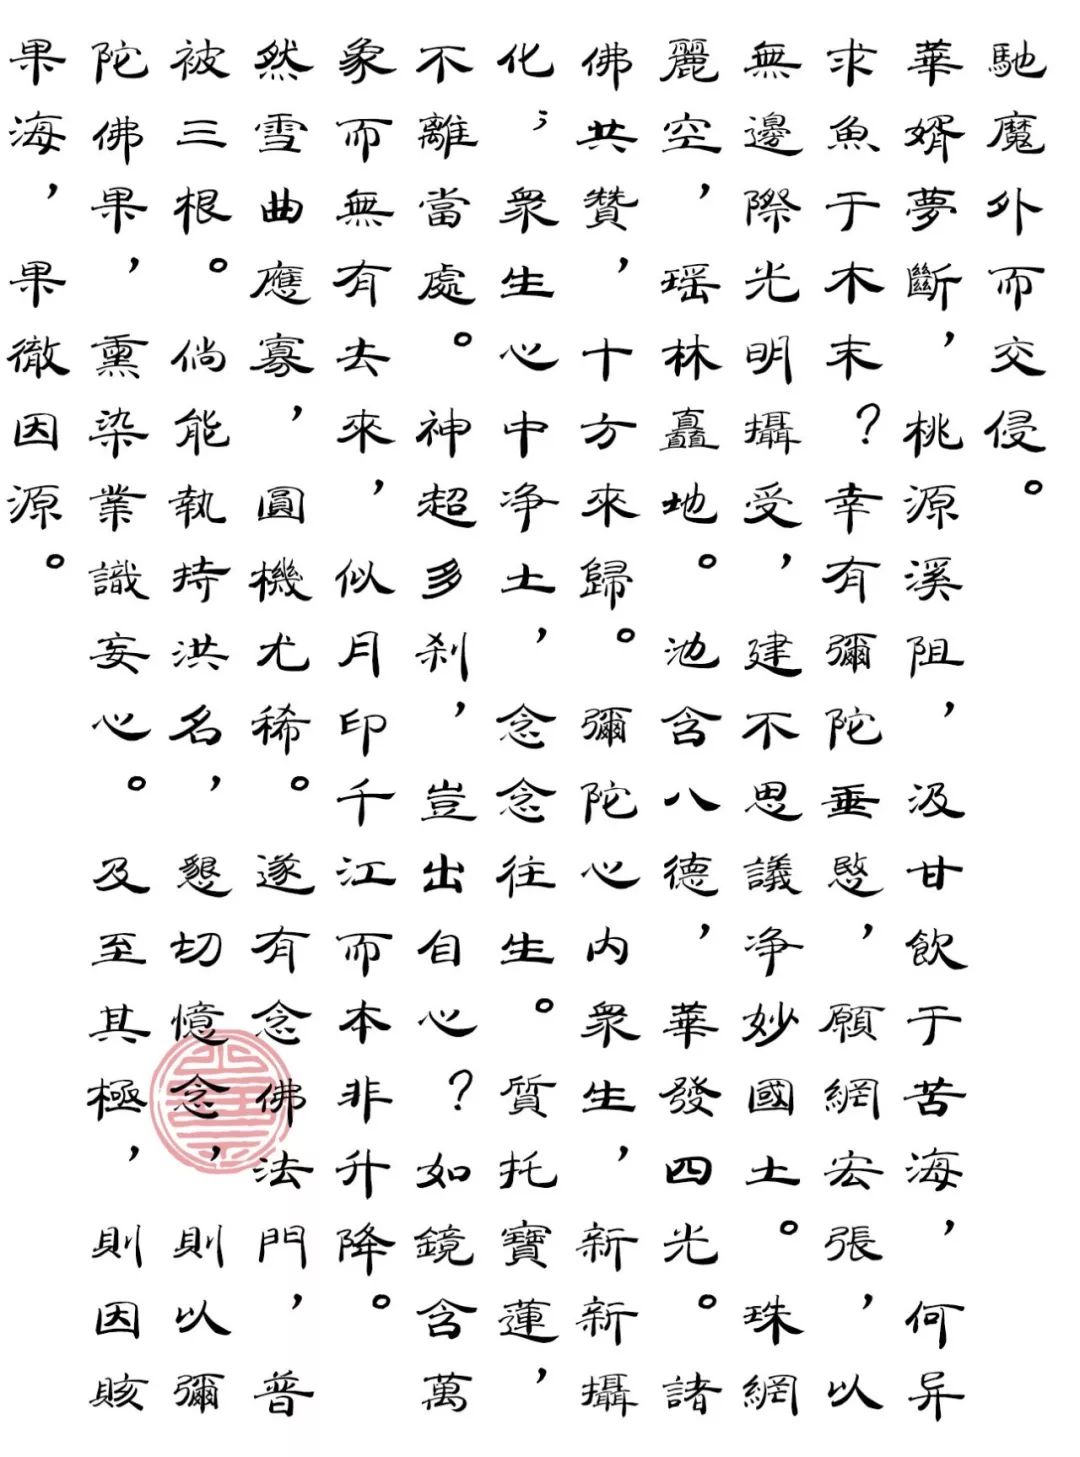 馳魔外而交侵。
華婿夢斷，桃源溪阻，汲甘飲于苦海，何异
求魚于木末？幸有彌陀垂愍，願網宏張，以
無邊際光明攝受，建不思議净妙國土。珠網
麗空，瑶林矗地。池含八德，華發四光。諸
佛共贊，十方來歸。彌陀心内衆生，新新攝
化；衆生心中净土，念念往生。質托寶蓮，
不離當處。神超多刹，豈出自心？如鏡含萬
象而無有去來，似月印千江而本非升降。
然雪曲應寡，圓機尤稀。遂有念佛法門，普
被三根。倘能執持洪名，懇切憶念，則以彌
陀佛果，熏染業識妄心。及至其極，則因賅
果海，果徹因源。